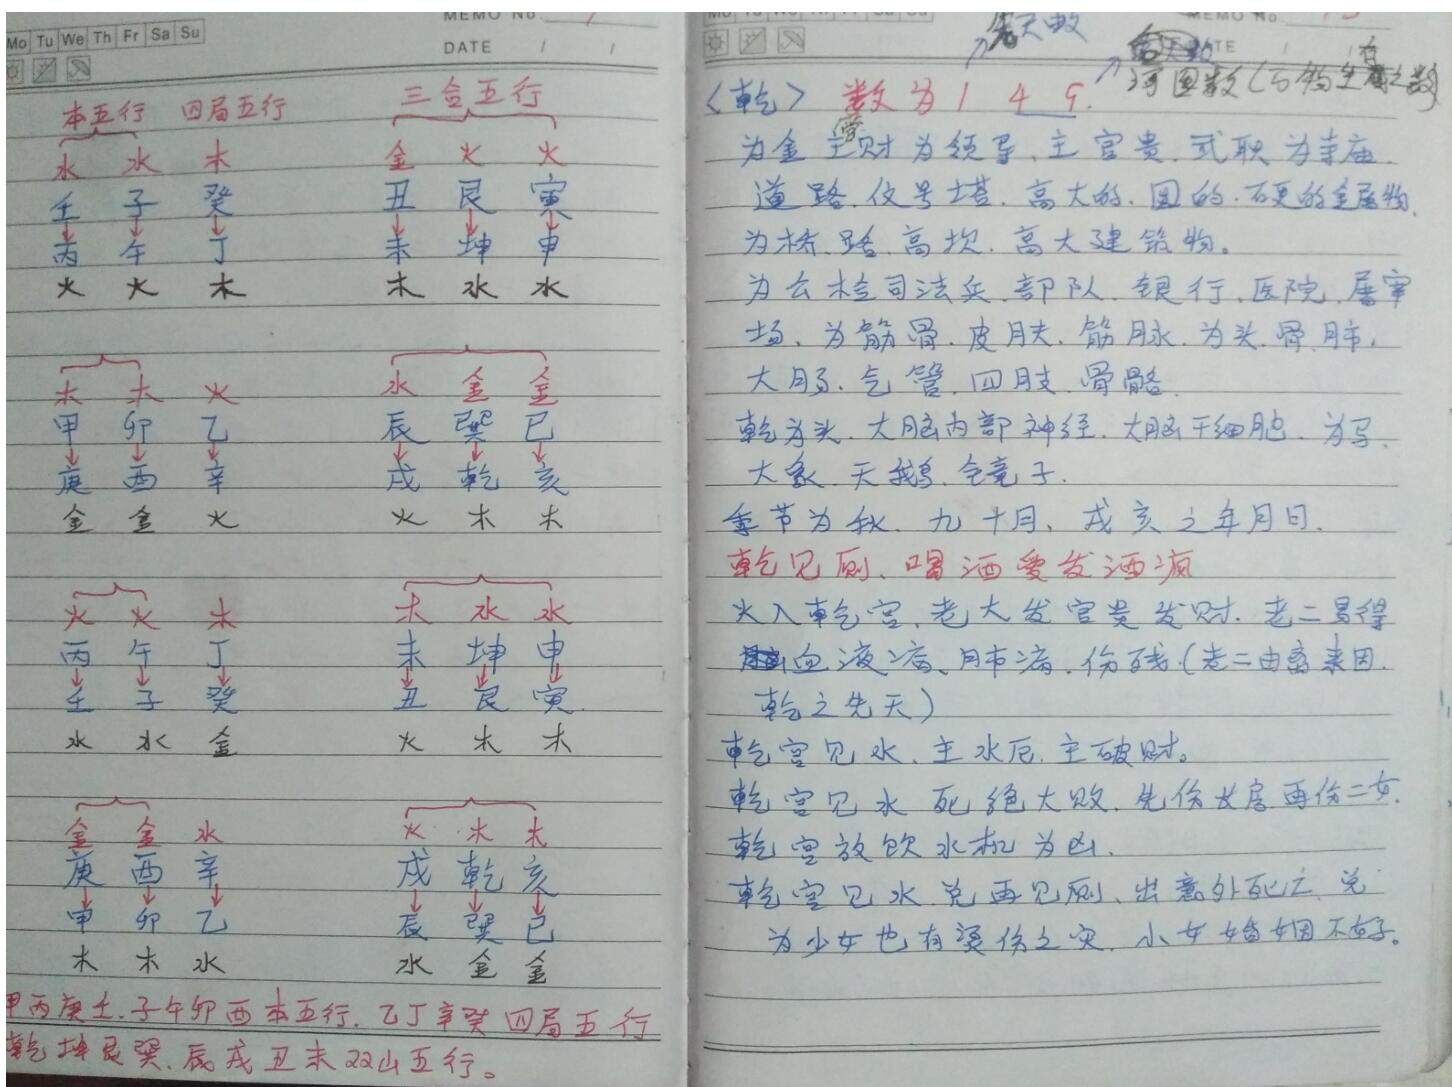 MEMO No.
Mo Tu We Th Fr Sa Su
DATE / /
本五行 四局五行 三合五行
水 水 木 金 火 火
壬 子 癸 丑 艮 寅
丙 午 丁 未 坤 申
火 火 木 木 水 水
木 木 火 水 金 金
甲 卯 乙 辰 巽 巳
庚 酉 辛 戌 乾 亥
金 金 火 火 木 木
火 火 木 木 水 水
丙 午 丁 未 坤 申
壬 子 癸 丑 艮 寅
水 水 金 火 木 木
金 金 水 火 木 木
庚 酉 辛 戌 乾 亥
甲 卯 乙 辰 巽 巳
木 木 水 水 金 金
甲丙庚壬.子午卯酉本五行.乙丁辛癸四局五行
乾坤艮巽.辰戌丑未双山五行。
Mo Tu We Th Fr Sa Su
MEMO No.
先天数
DATE / /
河图数(万物生之数)
<乾> 数为1 4 9.
为金 主财 为领导.主官贵.武职 为寺庙.
道路.信号塔.高大的.圆的.硬的金属物.
为桥.路.高坎.高大建筑物。
为公检司法兵.部队.银行.医院.屠宰
场.为筋骨.皮肤.筋脉.为头.骨.肺,
大肠.气管.四肢.骨骼.
乾为头.大脑内部神经.大脑干细胞.为马.
大象.天鹅.金童子.
季节为秋.九十月、戌亥之年月日.
乾见厕、喝酒爱发酒疯
火入乾宫.老大发官贵发财.老二易得
血液病、肺病.伤残(老二由离来因.
乾之先天)
乾宫见水.主水厄.主破财。
乾宫见水 死绝大败.先伤长房再伤二女.
乾宫放饮水机为凶.
乾宫见水 兑再见厕、出意外死亡.兑
为少女也有烫伤之灾.小女婚姻不好。